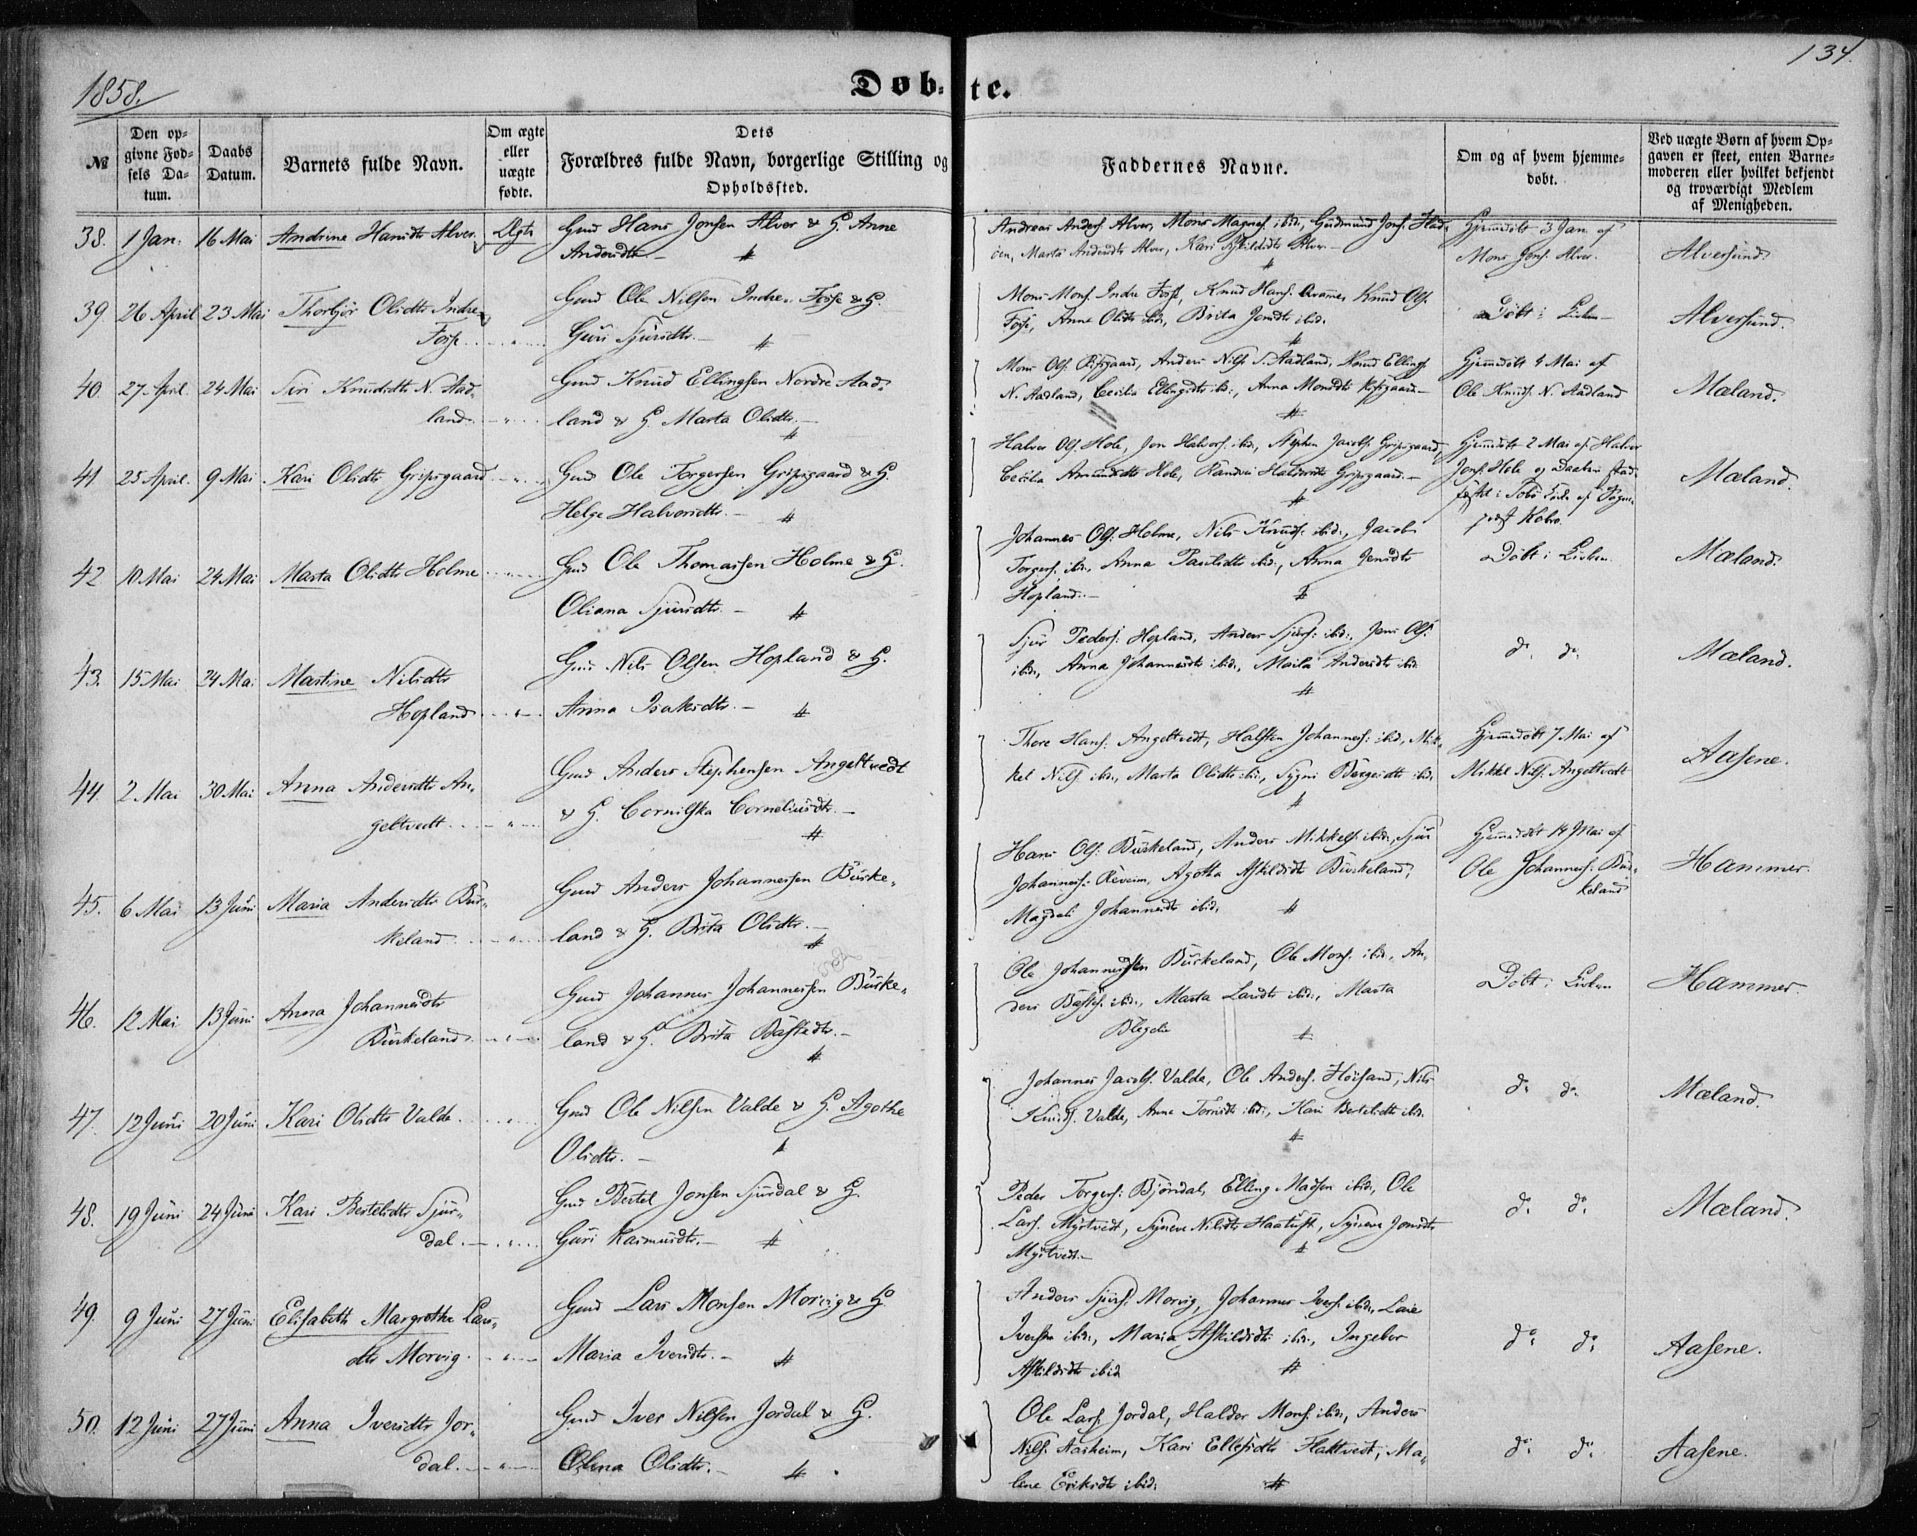 1858.
Døb-te.
134.
№
Den opgivne Fødsels Datum.
Daabs Datum.
Barnets fulde Navn.
Om ægte eller uægte fødte.
Dets
Forældres fulde Navn, borgerlige Stilling og
Opholdssted.
Faddernes Navne.
Om og af hvem hjemmedøbt.
Ved uægte Børn af hvem Opgaven er skeet, enten Barnemoderen eller hvilket bekjendt og troværdigt Medlem af Menigheden.
38. 1 Jan: 16 Mai Andrine Hansdtr Alver. Ægte
Gmd Hans Jonsen Alver & H. Anne
Andersdtr.
Andreas Anders. Alver, Mons Magnes. ibid, Gudmund Jons. Flad-
öen, Marta Andersdtr Alver, Kari Askildsdtr Alver.
Hjemmedöbt 3 Jan. af
Mons Jons. Alver.
Alversund
39. 26 April 23 Mai Thorbjör Olsdtr Indre
Fosse
Gmd Ole Nilsen Indre Fosse & H.
Guri Sjursdtr.
Mons Mons. Indre Fosse, Knud Hans. Kvamme, Knud Ols.
Fosse, Anne Olsdtr ibid, Brita Jonsdtr ibid.
Döbt i Kirken
Alversund.
40. 27 April. 24 Mai Siri Knudsdtr N. Aad-
land
Gmd Knud Ellingsen Nordre Aad-
land & H. Marta Olsdtr.
Mons Ols. Risgaard, Anders Nils. S. Aadland, Knud Ellings.
N. Aadland, Cecilia Ellingsdtr ibd., Anna Monsdtr Risgaard
Hjemmedöbt 4 Mai af
Ole Knuds. N. Aadland
Mæland.
41 25 April. 9 Mai Kari Olsdtr Gripsgaard
Gmd Ole Torgersen Gripsgaard & H.
Helge Halvorsdtr.
Halvor Ols. Hole, Jon Halvors. ibid, Stephen Jacobs. Gripsgaard,
Cecilia Amundsdtr Hole, Randvei Halvorsdtr Gripsgaard.
Hjemmedöbt 2 Mai af Halvor
Jons. Hole og Daaben stad-
fæstet i af Sogne-
præst Kobro.
Mæland.
42 10 Mai 24 Mai Marta Olsdtr Holme
Gmd Ole Thomassen Holme & H.
Oliana Sjursdtr.
Johannes Ols. Holme, Nils Knuds. ibid., Jacob
Torgers. ibid., Anna Paulsdtr ibid., Anna Jonsdtr
Hopland.
Döbt i Kirken.
Mæland.
43. 15 Mai 24 Mai Martine Nilsdtr
Hopland
Gmd Nils Olsen Hopland & H.
Anna Isaksdtr.
Sjur Peders. Hopland, Anders Sjurs. ibid., Jens Ols.
ibid., Anna Johannesdtr ibid., Maila Andersdtr ibid.
do. do.
Mæland.
44. 2 Mai 30 Mai Anna Andersdtr An-
geltvedt
Gmd Anders Stephensen Angeltvedt
& H. Cornilska Corneliusdtr.
Thore Hans. Angeltvedt, Halsten Johannes. ibid, Mik-
kel Nils. ibid., Marta Olsdtr ibid., Sygni Börgesdtr ibid.
Hjemmedöbt 7 Mai af
Mikkel Nils. Angeltvedt
Aasene.
45. 6 Mai 13 Juni Maria Andersdtr Bur-
keland
Gmd Anders Johannessen Burke-
land & H. Brita Olsdtr.
Hans Ols. Burkeland, Anders Mikkels. ibid., Sjur
Johannes. Reveim, Agotha Askildsdtr Burkeland,
Magdeli Johannesdtr ibid.
Hjemmedöbt 14 Mai af
Ole Johannes. Bur-
keland
Hammer.
46. 12 Mai 13 Juni Anna Johannesdtr
Burkeland
Gmd Johannes Johannessen Burke-
land & H. Brita Bastesdtr.
Ole Johannessen Burkeland, Ole Mons. ibid., An-
ders Bastes. ibid., Marta Larsdtr ibid., Marta
Blegelie
Döbt i Kirken
Hammer
47. 12 Juni 20 Juni Kari Olsdtr Valde
Gmd Ole Nilsen Valde & H. Agothe
Olsdtr.
Johannes Jacobs. Valde, Ole Anders. Höisand, Nils
Knuds. Valde, Anne Tormsdtr ibid., Kari Bertelsdtr ibid.
do do.
Mæland.
48. 19 Juni 24 Juni Kari Bertelsdtr Sjur-
dal
Gmd Bertel Jonsen Sjurdal & H.
Guri Rasmusdtr.
Peder Torgers. Bjöndal, Elling Madsen ibid., Ole
Lars. Myltvedt, Syneve Nilsdtr Haatuft, Syneve Jonsdtr
Myltvedt.
do. do.
Mæland.
49. 9 Juni 27 Juni Elisabeth Margrethe Lars-
dtr Morvig
Gmd Lars Monsen Morvig & H.
Maria Iversdtr.
Anders Sjurs. Morvig, Johannes Ivers. ibid., Lars
Iversen ibid., Maria Askildsdtr ibid., Ingebor
Askildsdtr ibid
do. do.
Aasene.
50. 12 Juni 27 Juni Anna Iversdtr Jor-
dal.
Gmd Iver Nilsen Jordal & H.
Olina Olsdtr.
Ole Lars. Jordal, Haldor Mons. ibid., Anders
Nils. Aasheim, Kari Ellefsdtr Flattvedt, Ma-
lene Eriksdtr ibid.
do. do.
Aasene.